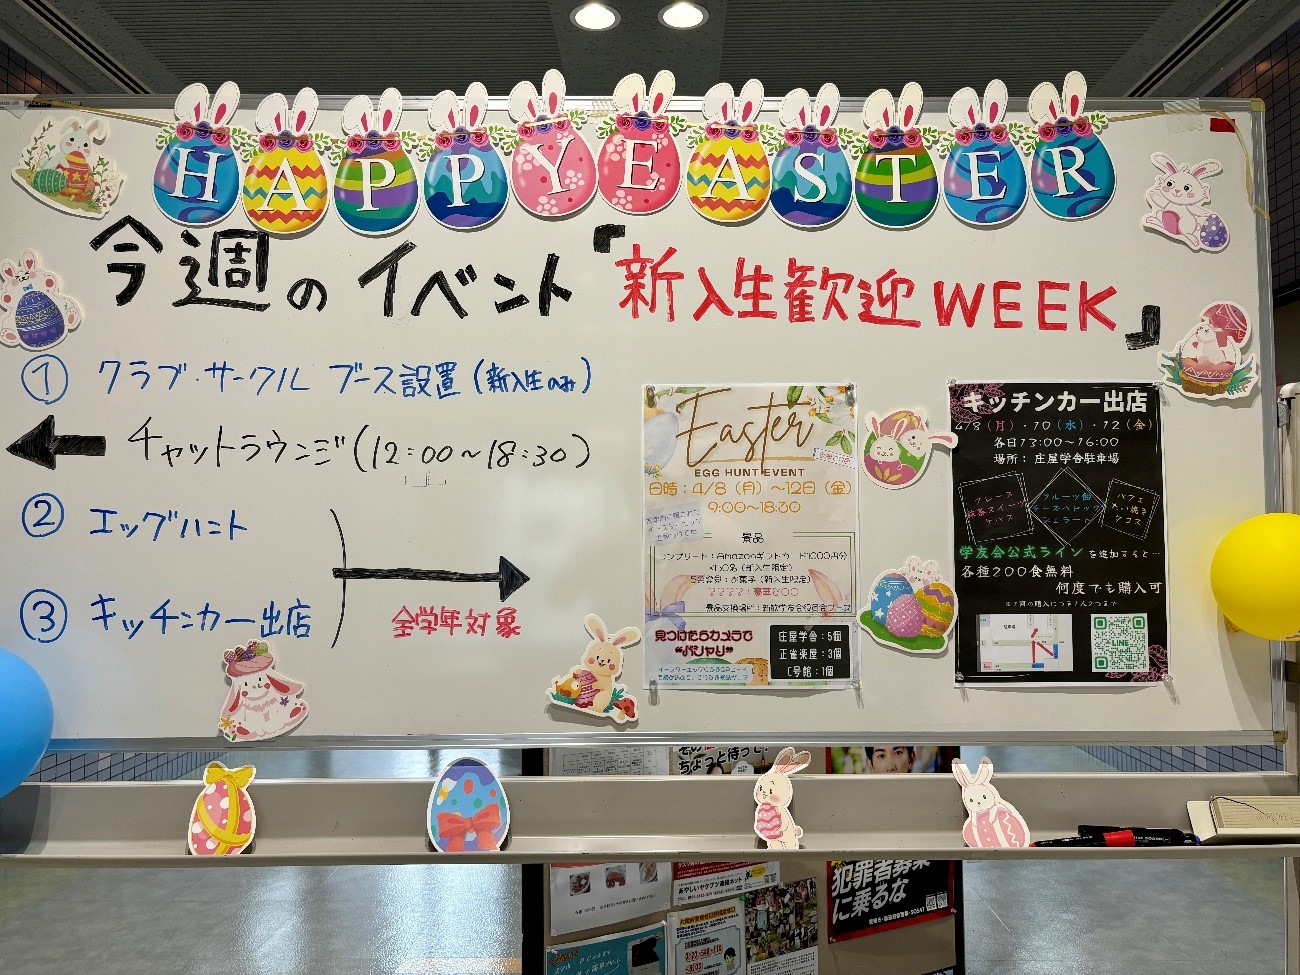 HAPPY EASTER
今週のイベント『新入生歓迎WEEK』
① クラブ・サークル ブース設置(新入生のみ)
チャットラウンジ(12:00～18:30)
② エッグハント
③ キッチンカー出店
全学年対象
Easter
EGG HUNT EVENT
日時:4/8(月)～12日(金)
9:00～18:30
景品
景品交換場所:新歓学友会役員会ブース
見つけたらカメラで
"パシャリ"
庄屋学舎:5個
正雀楽屋:3個
C号館:1個
キッチンカー出店
4/8(月)・10(水)・12(金)
各日13:00～16:00
場所: 庄屋学舎駐車場
クレープ
ケバブ
フルーツ飴
チーズハットッグ
ジェラート
パフェ
たい焼き
タコス
学友会公式ラインを追加すると…
各種200食無料
何度でも購入可
LINE
ちょっと待って!
犯罪者募集
に乗るな